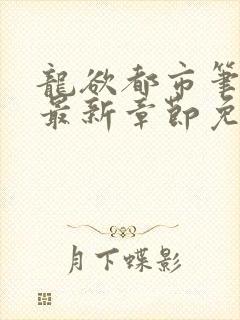 龍欲都市筆
最新章節免
月下蝶影